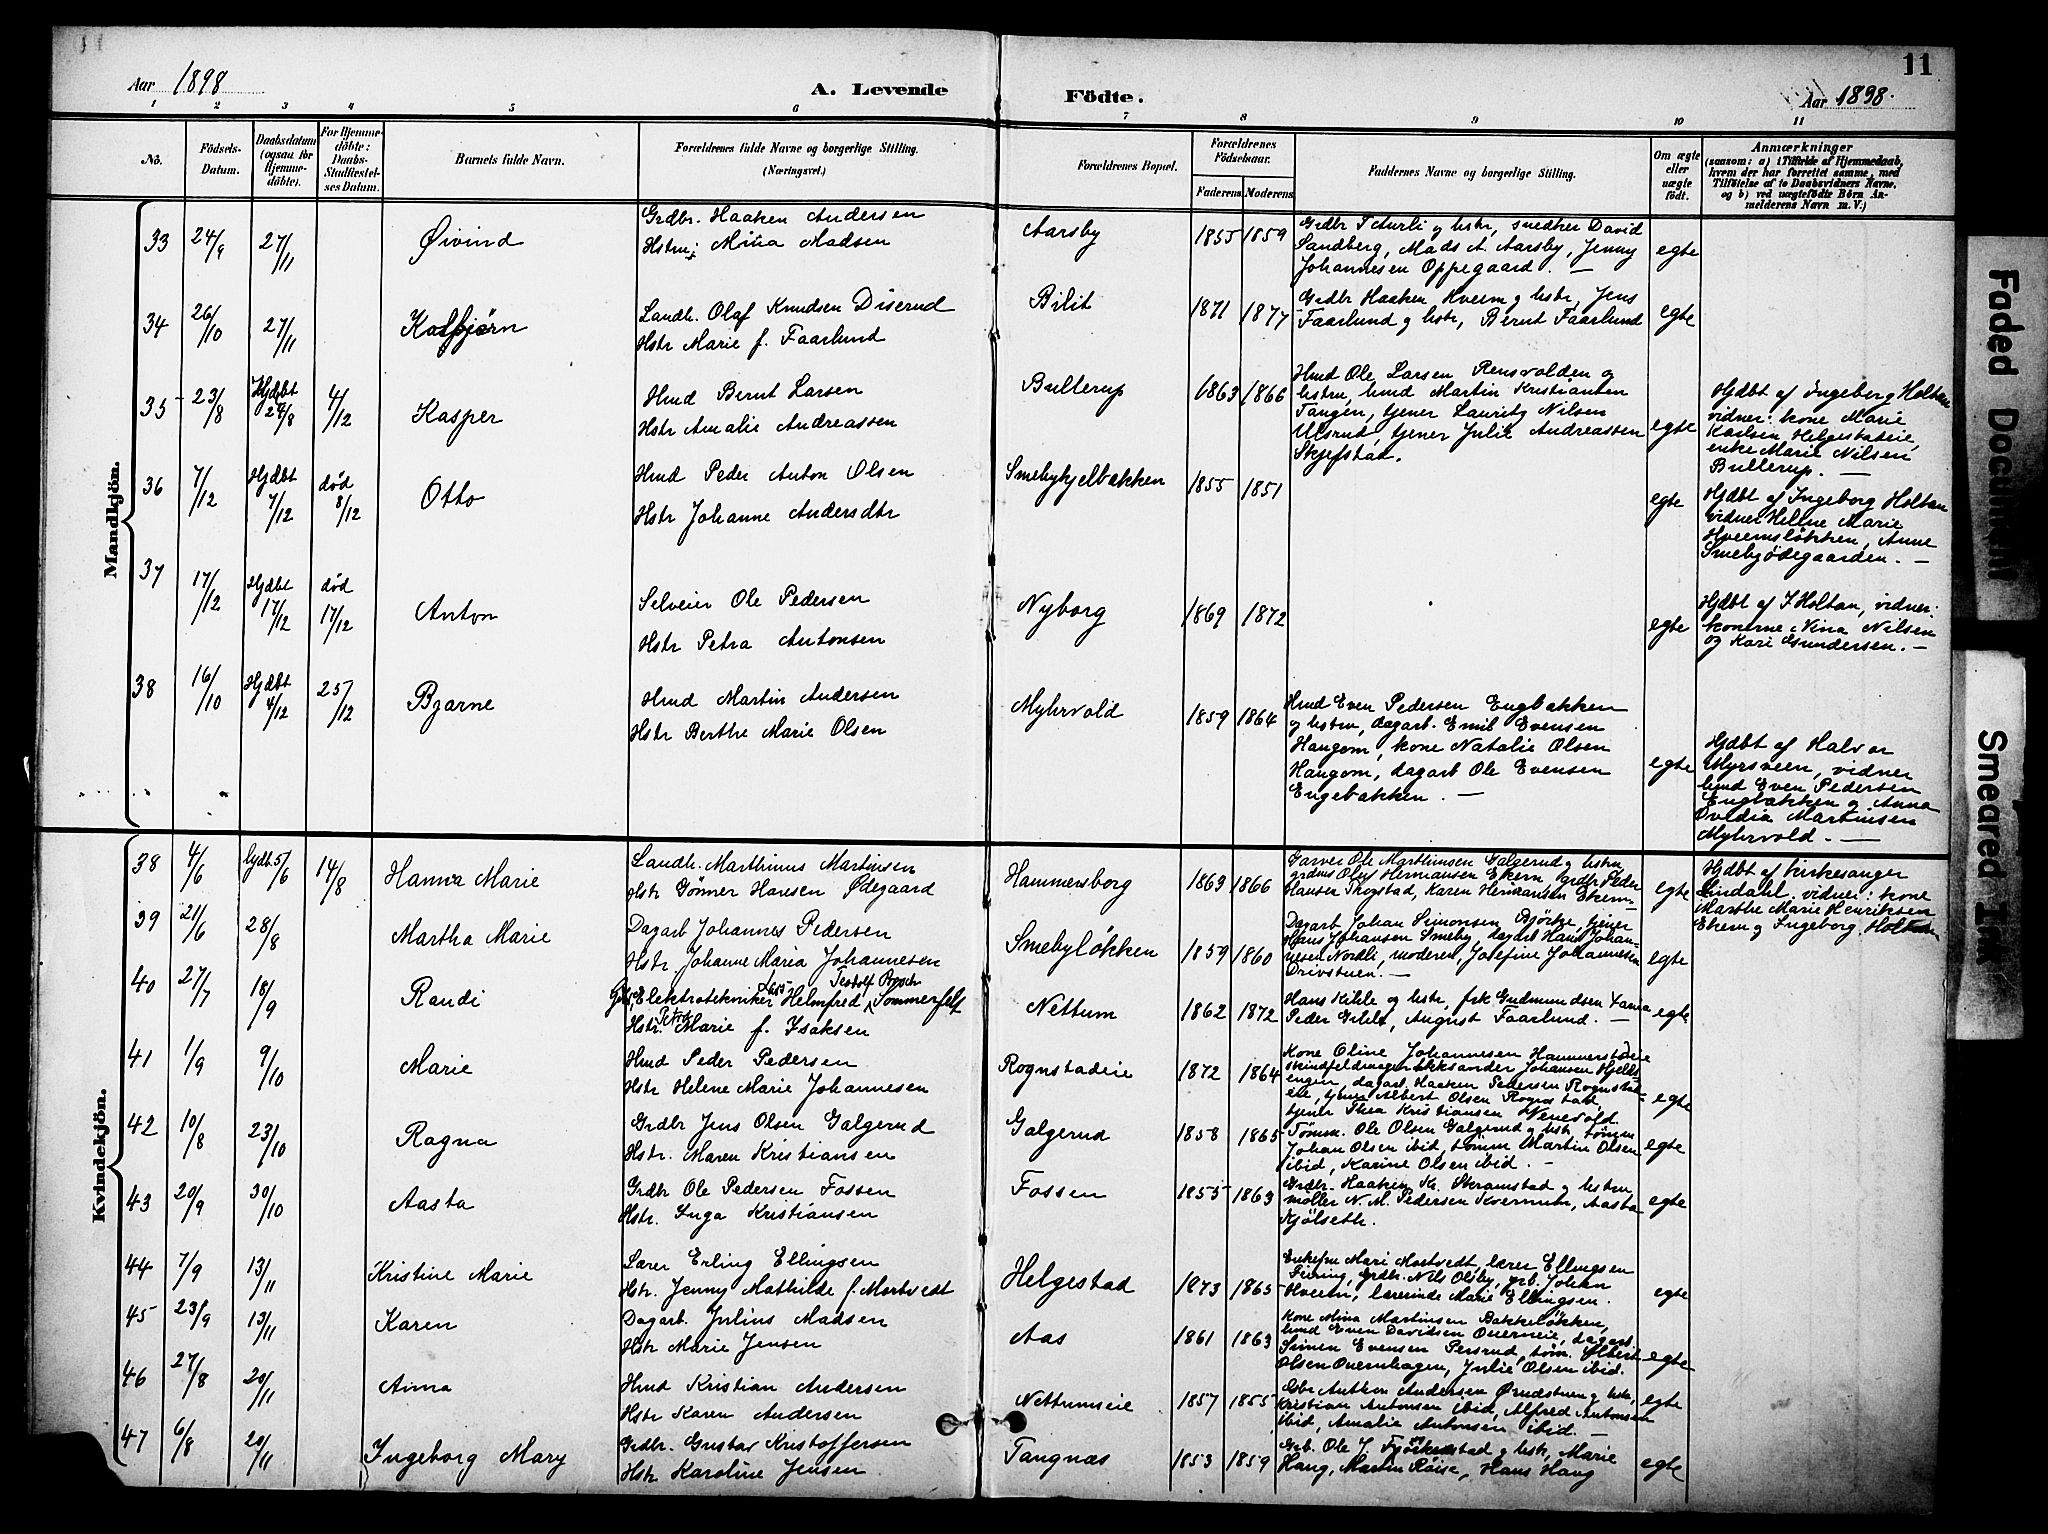 11
Aar 1898
A. Levende Födte.
Aar 1898.
1 2 3 4 5 6 7 8 9 10 11
No.
Födsels-Datum.
Daabsdatum (ogsaa for Hjemme-döbte).
For Hjemme-döbte: Daabs-Stadfæstel-ses Datum.
Barnets fulde Navn.
Forældrenes fulde Navne og borgerlige Stilling.
(Næringsvei.)
Forældrenes Bopæl.
Forældrenes Födselsaar.
Faderens. Moderens.
Faddernes Navne og borgerlige Stilling.
Om ægte eller uægte födt.
Anmærkninger
(saasom: a) i Tilfælde af Hjemmedaab,
hvem der har forrettet samme, med
Tilföielse af to Daabsvidners Navne,
og b) ved uægtefödte Börn An-
melderens Navn m. V.)
Mandkjön.
33 24/9 27/11 Øivind
Grdbr. Haaken Andersen
Hstru Mina Madsen
Aarsby 1855 1859
Grdbr T Aurli og hstr, snedker David
Sandberg, Mads A. Aarsby, Jenny
Johannesen Oppegaard. —
egte
34 26/10 27/11 Kolbjørn
Landh. Olaf Knudsen Diserud
Hstr Marie f. Faarlund
Bilit 1871 1877
Grdbr Haaken Hveem og hstr, Jens
Faarlund og hstr, Bernt Faarlund
egte
35 23/8 Hjdbt 24/8 4/12 Kasper
Hmd Bernt Larsen
Hstr Amalie Andreassen
Bullerup 1863 1866
Hmd Ole Larsen Rensvolden og
hstru, hmd Martin Kristiansen
Tangen, tjener Lauritz Nilsen
Ulsrud, tjener Julie Andreassen
Skjefstad.
egte
Hjdbt af Ingeborg Holtan
vidner: kone Marie
Karlsen Helgestadeie,
enke Marie Nilsen
Bullerup. —
36 7/12 Hjdbt 7/12 død 8/12 Otto
Hmd Peder Anton Olsen
Hstr Johanne Andersdtr
Smebykjelbakken 1855 1851
egte
Hjdbt af Ingeborg Holtan
vidner Helene Marie
Hveemsløkken, Anne
Smebyødegaarden. —
37 17/12 Hjdbt 17/12 død 17/12 Anton
Selveier Ole Pedersen
Hstr Petra Antonsen
Nyborg 1869 1872
egte
Hjdbt af I Holtan, vidner:
konerne Nina Nilsen
og Kari Gundersen. —
38 16/10 Hjdbt 4/12 25/12 Bjarne
Hmd Martin Andersen
Hstr Berthe Marie Olsen
Myhrvold 1859 1864
Hmd Even Pedersen Engbakken
og hstru, dagarb. Emil Evensen
Haugom, kone Natalie Olsen
Haugom, dagarb Ole Evensen
Engebakken. —
egte
Hjdbt af Halvor
Myrsveen, vidner
hmd Even Pedersen
Engbakken og Anna
Ovidia Martinsen
Myhrvold. —
Kvindekjön.
38 4/6 hjdb. 5/6 14/8 Hanna Marie
Landh. Marthinus Martinsen
Hstr Gønner Hansen Ødegaard
Hammersborg 1863 1866
Garver Ole Marthinsen Galgerud og hstru
grdms Oles Hermansen Ekern, grdbr Peder
Hansen Thogstad, Karen Hermansen Ekern
egte
Hjdbt af kirkesanger
Lindahl, vidner: kone
Marthe Marie Henriksen
Ekern og Ingeborg Holtan
39 21/6 28/8 Martha Marie
Dagarb Johannes Pedersen
Hstr Johanne Maria Johannesen
Smebyløkken 1859 1860
Dagarb Johan Simonsen Bjørke, tjener
Hans Johansen Smeby dagarb Hans Johan-
nesen Nordli, moderen, Josefine Johannesen
Drivstuen. —
egte
40 27/7 18/9 Randi
Elektrotekniker Helmfred Sommerfelt
Hstr. Petra Marie f. Isaksen
Nettum 1862 1872
Hans Kihle og hstr, frk Gudmundsen
Peder Gihle, August Faarlund. —
egte
41 1/9 9/10 Marie
Hmd Peder Pedersen
Hstr Helene Marie Johannesen
Rognstadeie 1872 1864
Kone Oline Johannesen Hammerstadeie
skindfeldmager Aleksander Johansen
engen, dagarb. Haaken Pedersen Rognstad-
eie, tjener Albert Olsen Rognstad
tjener Thea Kristiansen Nenevold.
egte
42 10/8 23/10 Ragna
Grdbr Jens Olsen Galgerud
Hstr. Maren Kristiansen
Galgerud 1858 1865
Tømm. Ole Olsen Galgerud og hstr tømm
Johan Olsen ibid, tømm Martin Olsen
ibid, Karine Olsen ibid. —
egte
43 20/9 30/10 Aasta
Grdbr Ole Pedersen Fossen
Hstr. Inga Kristiansen
Fossen 1855 1863
Grdbr. Haaken Kr. Skramstad og hstru
møller N. M. Pedersen Kvernum, Aasta
Kjølseth.
egte
44 7/9 13/11 Kristine Marie
Lærer Erling Ellingsen
Hstr. Jenny Mathilde f. Mortvedt
Helgestad 1873 1865
Enkefru Mari Mortvedt, lærer Ellingsen
grdbr. Nils Olsby, grb. Johan
Hveem, lærerinde Marie Ellingsen.
egte
45 23/9 13/11 Karen
Dagarb. Julius Madsen
Hstr Marie Jensen
Aas 1861 1863
Kone Mina Martinsen Bakkeløkken,
hmd Even Davidsen dagarb.
Simen Evensen Persrud, tøm. Albert
Olsen Ouernhagen, Julie Olsen ibid.
egte
46 27/8 20/11 Anna
Hmd Kristian Andersen
Hstr Karen Andersen
Nettumseie 1857 1855
Gbr Anthon Andersen og hstr,
Kristian Antonsen ibid, Alfred Antonsen
ibid, Amalie Antonsen ibid. —
egte
47 6/8 20/11 Ingeborg Mary
Grdbr. Gustav Kristoffersen
Hstr Karoline Jensen
Tangnæs 1853 1859
Grb. Ole J. og hstr, Marie
Haug, Martin Røise, Hans Haug
egte
Faded Document
Smeared Ink